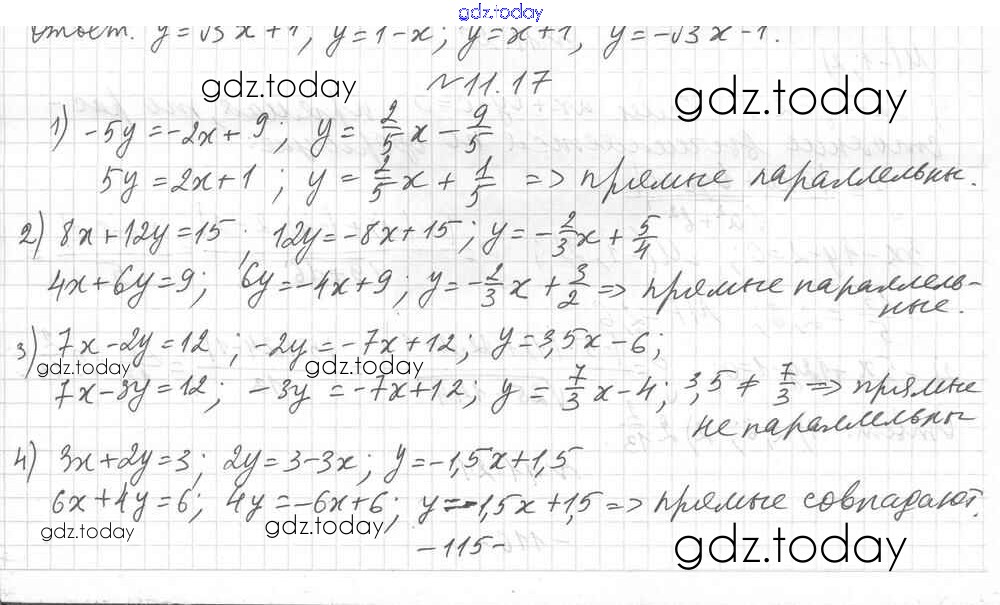 gdz.today
Ответ. y = √3x + 1, y = 1 - x; y = x + 1, y = -√3x - 1.
gdz.today № 11.17 gdz.today
1) -5y = -2x + 9; y = 2/5 x - 9/5
5y = 2x + 1; y = 2/5 x + 1/5 => прямые параллельны.
2) 8x + 12y = 15; 12y = -8x + 15; y = -2/3 x + 5/4
4x + 6y = 9; 6y = -4x + 9; y = -2/3 x + 3/2 => прямые параллель-
ные.
3) 7x - 2y = 12; -2y = -7x + 12; y = 3,5x - 6;
gdz.today gdz.today
7x - 3y = 12; -3y = -7x + 12; y = 7/3 x - 4; 3,5 ≠ 7/3 => прямые
не параллельны
4) 3x + 2y = 3; 2y = 3 - 3x; y = -1,5x + 1,5
6x + 4y = 6; 4y = -6x + 6; y = -1,5x + 1,5 => прямые совпадают.
gdz.today gdz.today
-115- gdz.today